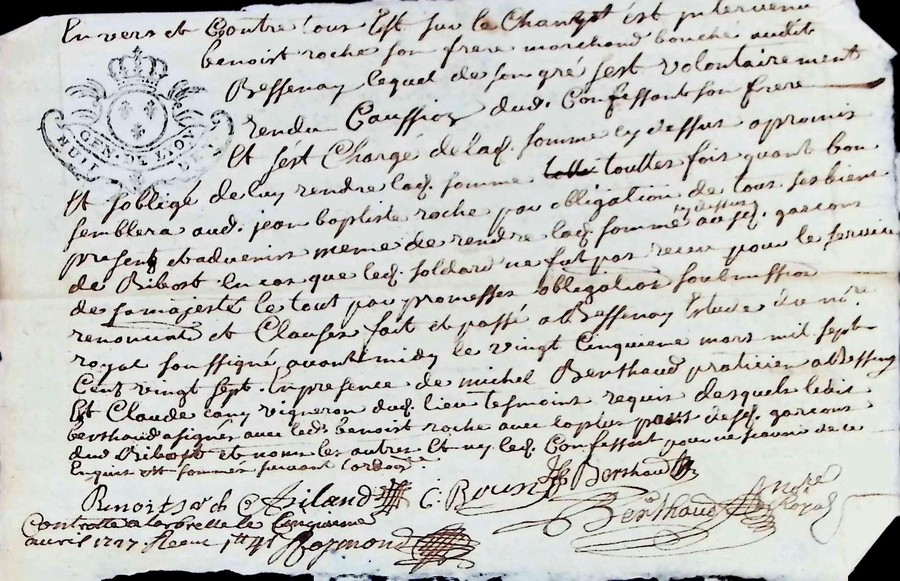 Envers et Contre tous Est sur le Champt est intervenu
benoist roche son frere marchand bouché audit
Bessenay lequel de son gré sest volontairement
rendu Caussion dud. Confessant son frere
GEN. DE LYON
Et sest Chargé de laq. somme cy dessus a promis
Et sobligé de luy rendre laq. somme toutes fois quant bon
semblera aud. jean baptiste roche par obligation de tous ses biens
cy dessus
present et advenir meme de rendre laq. somme aux sq. garcons
de Ribost En cas que leq. soldard ne fut pas receu pour le service
de sa majesté le tout par promesses obligation soubmission
renonciat et Clauses fait et passé a Bessenay Estude du nre
royal soussigné avant midy le vingt Cinquieme mars mil sept
Cent vingt sept. En presence de michel Berthaud praticien a Bessenay
Et Claude cany vigneron duq. lieu tesmoins requis desquels ledit
berthaud a signé avec led. benoist roche avec la plus part desq. garcons
dud Ribost et nous les autres Et ny leq. Confessant pour ne scavoir de ce
Enquis et sommés suivant lordce.
Benoit roch C. Berthaud
Berthaud Nre Royal
Controllé a larbrelle le Cinquieme
avril 1727 Receu Raymond